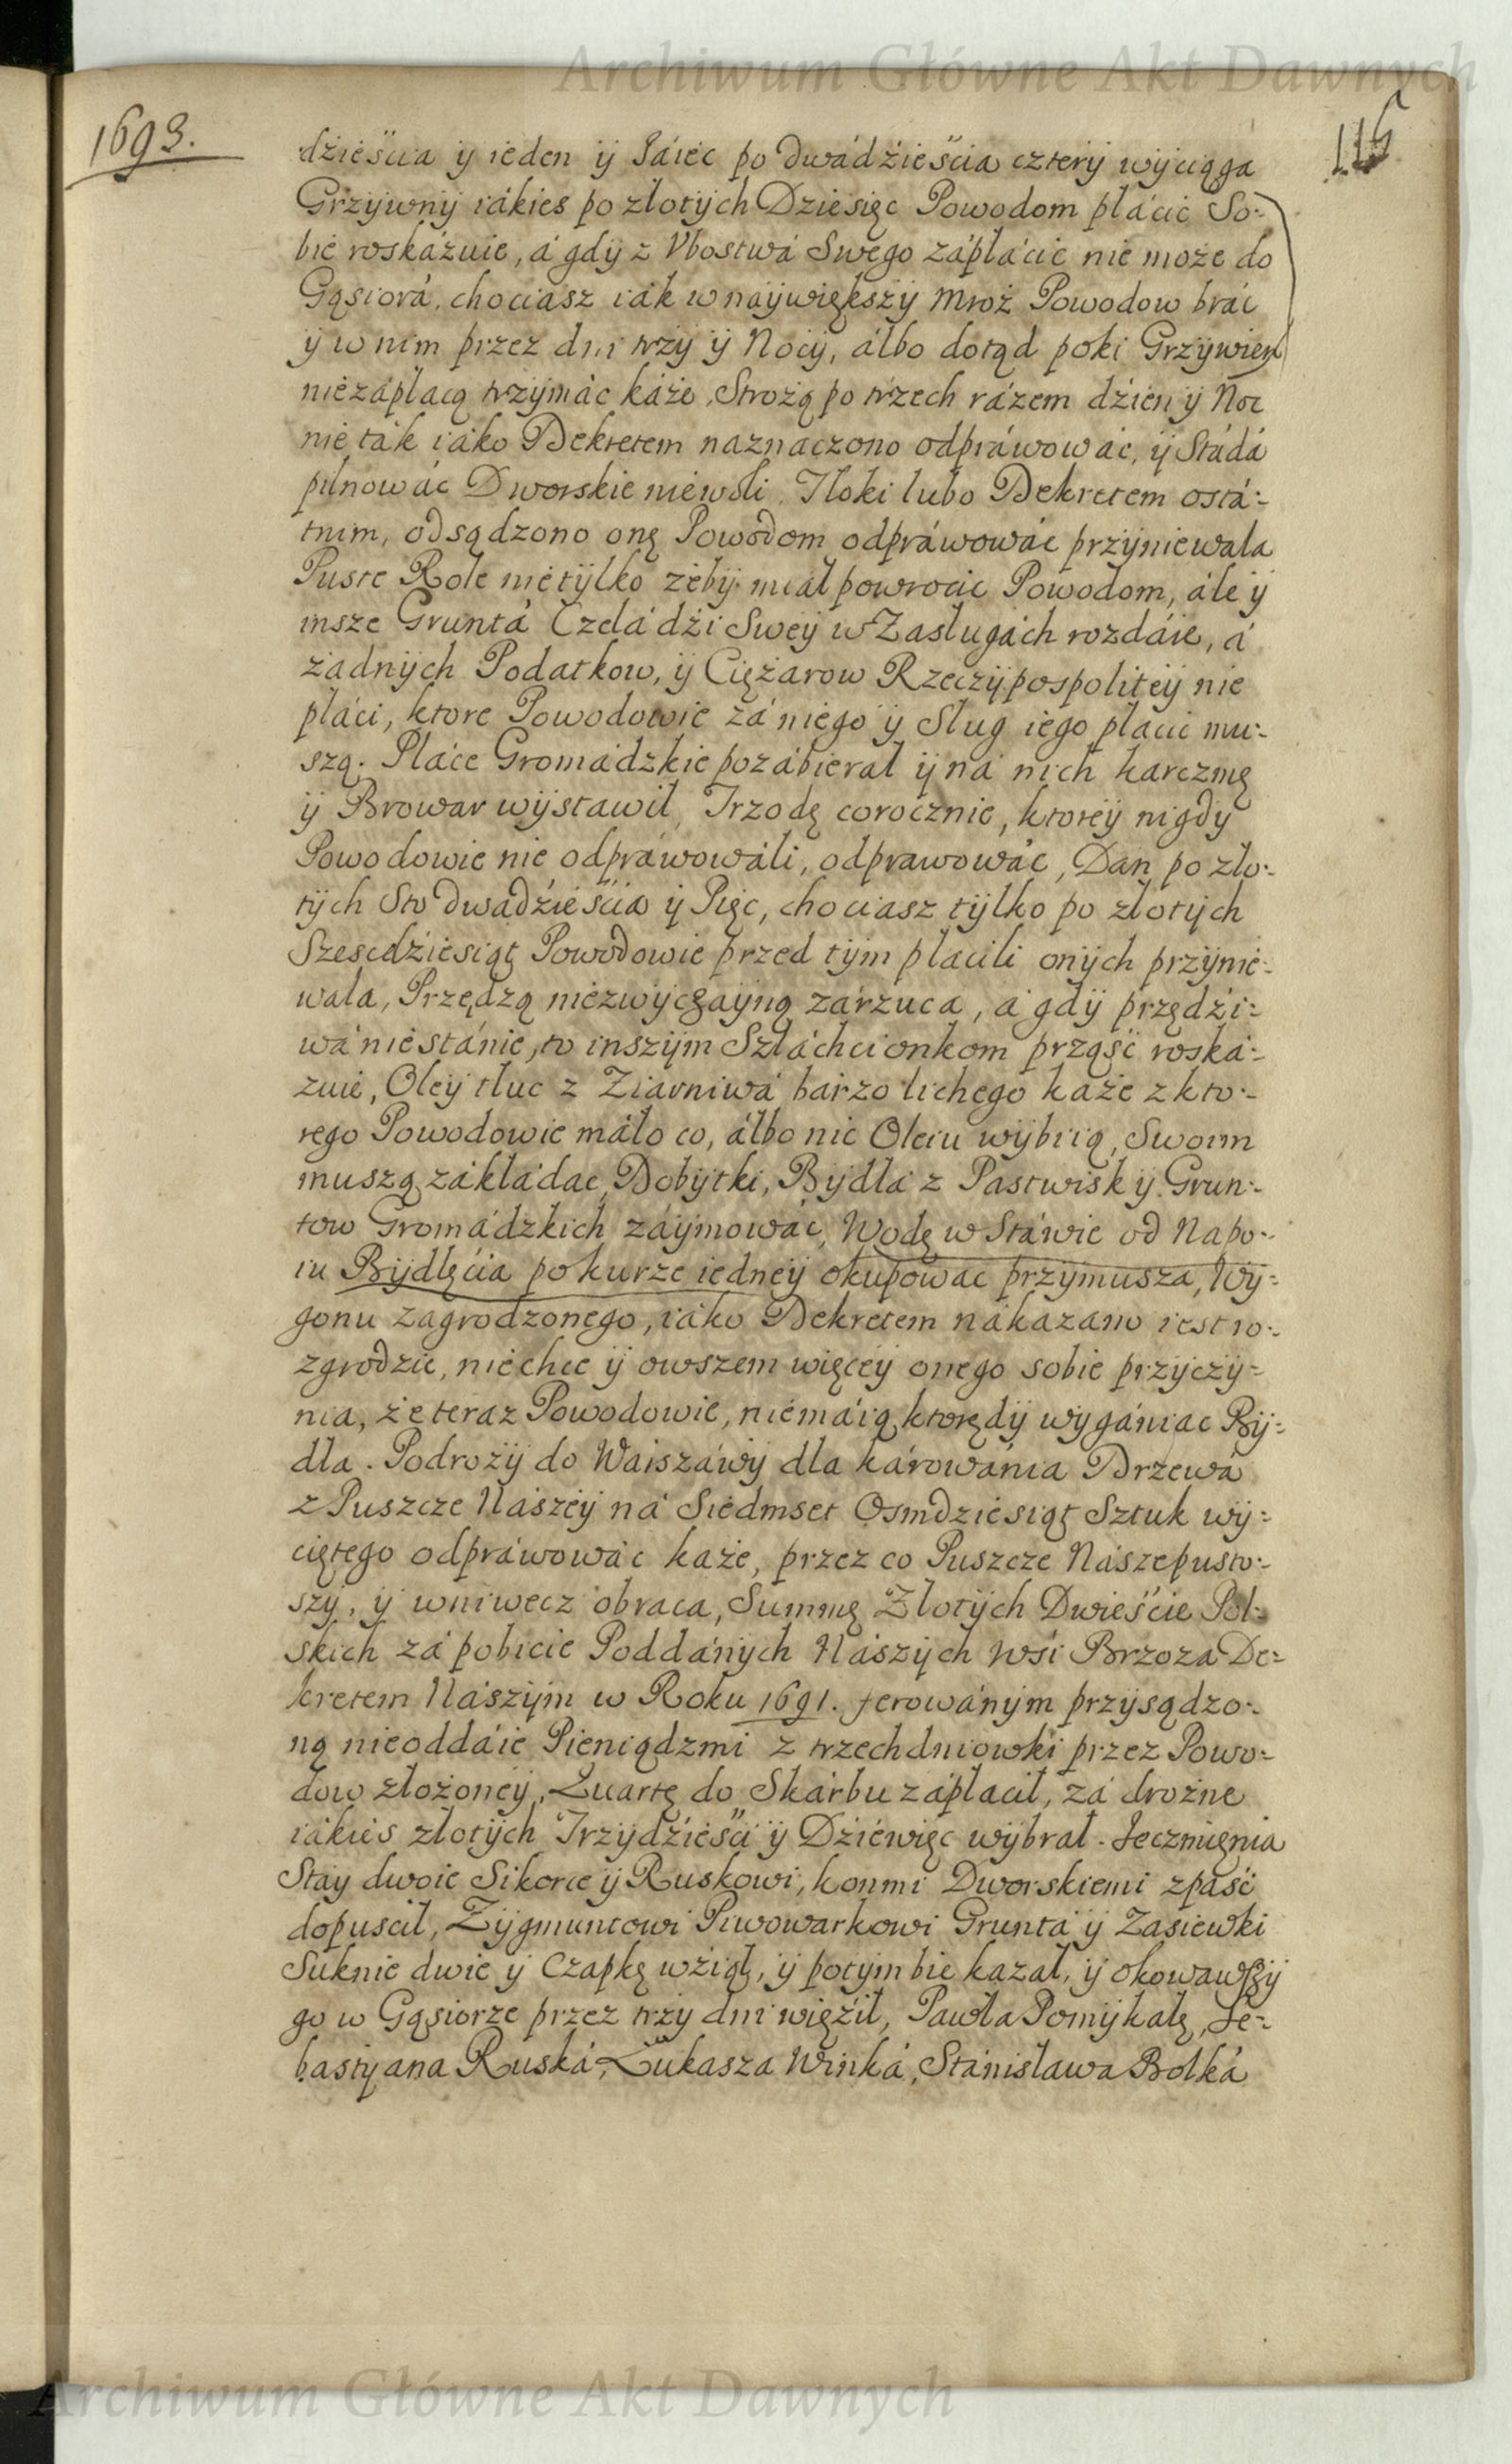 Archiwum Główne Akt Dawnych
1693.
115
dźieśćia ÿ ieden ÿ Jáiec po dwádźieśćia czterÿ wÿciąga
Grzÿwnÿ iákies po złotÿch Dźiesięc Powodom płácić So:-
bie roskázuie, á gdÿ z Vbostwá Swego zápłácić nie może do
Gąsiorá, chociasz iák w naÿwiększÿ Mroź Powodow brác
ÿ w nim przez dni trzÿ ÿ Nocÿ, álbo dotąd poki Grzÿwien
niezápłacą trzÿmác káże, Strożą po trzech rázem dźien ÿ Noc
nie ták iáko Dekretem naznaczono odpráwowác, ÿ Stádá
pilnowác Dworskie niewoli. Tłoki lubo Dekretem ostá:-
tnim, odsądzono onę Powodom odpráwowác przÿniewala
Puste Role nietÿlko żebÿ miał powrocic Powodom, ále ÿ
insze Gruntá Czeládźi Sweÿ w Zasługách rozdáie, á
żadnÿch Podatkow, ÿ Ciężarow Rzeczÿpospoliteÿ nie
płáci, ktore Powodowie zá niego ÿ Sług iego płacic mu:-
szą. Pláce Gromádzkie pozábierał ÿ ná nich karczmę
ÿ Browar wÿstawił, Trzodę corocznie, ktoreÿ nigdÿ
Powodowie nie odpráwowáli, odprawowác, Dan po zło:-
tÿch Sto dwadźieśćia ÿ Pięc, chociasz tÿlko po złotÿch
Szescdźiesiąt Powodowie przed tÿm płacili onÿch przÿnie:-
wala, Przędzą niezwÿczaÿną zárzuca, á gdÿ przędźi:-
wá niestánie, to inszÿm Szláchcionkom prząść roská:-
zuie, Oleÿ tłuc z Ziarniwá bárzo lichego káże z kto:-
rego Powodowie máło co, álbo nic Oleiu wÿbiią, Swoim
muszą zákładac, Dobÿtki, Bÿdłá z Pastwisk ÿ Grun:-
tow Gromádzkich záÿmowác, Wodę w Stáwie od Napo:-
iu Bÿdlęćia po kurze iedneÿ okupowac przÿmusza, Wÿ:-
gonu zagrodzonego, iáko Dekretem nákazano iest ro:-
zgrodzic, niechce ÿ owszem więceÿ onego sobie przÿczÿ:-
nia, że teraz Powodowie, niemáią ktorędÿ wÿgániac Bÿ:-
dła. Podrożÿ do Warszáwÿ dla károwánia Drzewá
z Puszcze Nászeÿ ná Siedmset Osmdźiesiąt Sztuk wÿ:-
ciętego odpráwowác każe, przez co Puszcze Násze pusto:-
szÿ, ÿ wniwecz obraca, Summę Złotÿch Dwieście Pol:-
skich zá pobicie Poddánÿch Nászÿch wsi Brzoza De:-
kretem Nászÿm w Roku 1691. ferowánÿm przÿsądzo:-
ną nieoddáie Pieniądzmi z trzechdniowki przez Powo:-
dow złożoneÿ, Quartę do Skárbu zápłacił, zá drożne
iákieś złotÿch Trzÿdźieśći ÿ Dźiéwięc wÿbrał. Jęczmięnia
Stay dwoie Sikorze ÿ Ruskowi, konmi Dworskiemi zpáść
dopuscił, Zÿgmuntowi Piwowarkowi Gruntá ÿ Zasiewki
Suknie dwie ÿ Czapkę wźiął, ÿ potÿm bic kazał, ÿ okowawszÿ
go w Gąsiorze przez trzÿ dni więźił, Pawła Pomÿkałę, Se:-
bastÿana Ruská, Łukasza Winká, Stánisława Bolká
Archiwum Główne Akt Dawnych